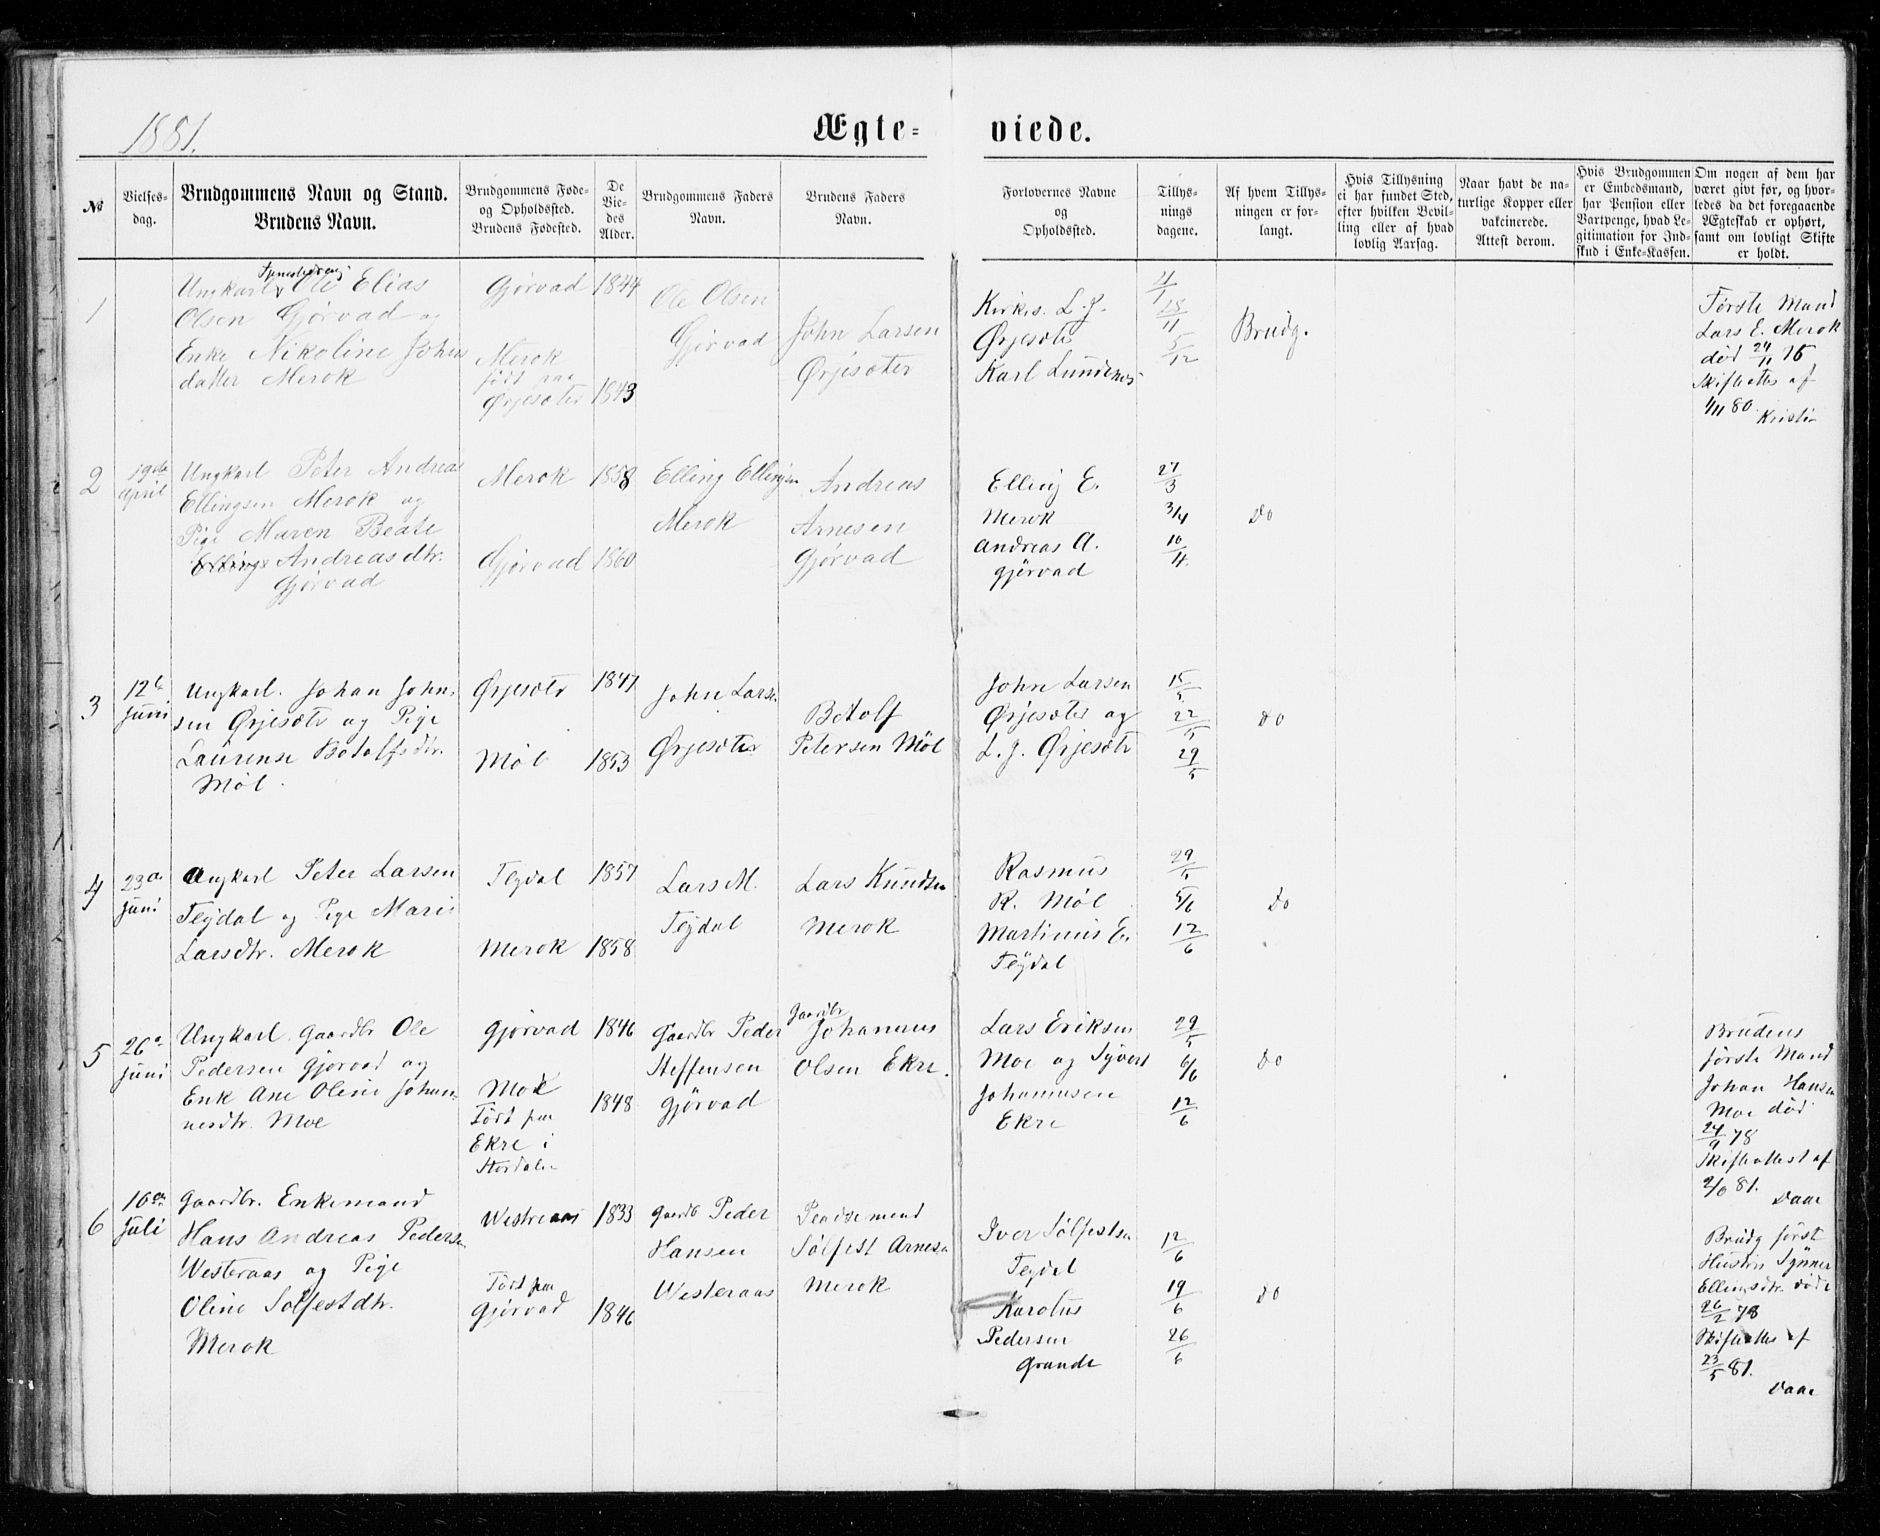 1881.
Ægte- viede.
№
Vielses-
dag.
Brudgommens Navn og Stand.
Brudens Navn.
Brudgommens Føde-
og Opholdssted.
Brudens Fødested.
De
Vie-
des
Alder.
Brudgommens Faders
Navn.
Brudens Faders
Navn.
Forlovernes Navne
og
Opholdssted.
Tillys-
nings
dagene.
Af hvem Tillys-
ningen er for-
langt.
Hvis Tillysning
ei har fundet Sted,
efter hvilken Bevil-
ling eller af hvad
lovlig Aarsag.
Naar havt de na-
turlige Kopper eller
vakcinerede.
Attest derom.
Hvis Brudgommen
er Embedsmand,
har Pension eller
Vartpenge, hvad Le-
gitimation for Ind-
skud i Enke-Kassen.
Om nogen af dem har
været givt før, og hvor-
ledes da det foregaaende
Ægteskab er ophørt,
samt om lovligt Skifte
er holdt.
1
Ungkarl Ole Elias
Olsen Gjørvad og
Enke Nikoline Johns
datter Merok
Gjørvad
Merok
født paa
Ørjesæter
1844
1843
Ole Olsen
Gjørvad
John Larsen
Ørjesæter
Kirkes. L. J.
Ørjesæte
Karl Lundenes
28/11
5/12
Brudg.
Første Mand
Lars E. Merok
død 24/11 75
Skifteattes af
1/11 80.
2
19de
April
Ungkarl Peter Andreas
Ellingsen Merok og
Pige Maren Beate
Andreasdtr.
Gjørvad
Merok
Gjørvad
1858
1860
Elling Ellingsen
Merok
Andreas
Arnesen
Gjørvad
Elling E.
Merok
Andreas A.
Gjørvad
27/3
3/4
10/4
Do
3
12te
Juni
Ungkarl. Johan John-
sen Ørjesæte og Pige
Laurense Botolfsdtr.
Møl.
Ørjesæte
Møl
1847
1853
John Larsen
Ørjesæter
Botolf
Petersen Møl
John Larsen
Ørjesæter og
L. J. Ørjesæte
15/5
22/5
29/5
Do
4
23de
Juni
Ungkarl Peter Larsen
Flydal og Pige Marie
Larsdtr. Merok
Flydal
Merok
1857
1858
Lars M.
Flydal
Lars Knudsen
Merok
Rasmus
R. Møl
Martinus E.
Flydal
29/5
5/6
12/6
Do
5
26de
Juni
Ungkarl Gaardbr Ole
Pedersen Gjørvad og
Enk Ane Oline Johan-
nesdtr. Moe
Gjørvad
Moe
Født paa
Ekre i
Stordalen
1846
1848.
Gaardbr Peder
Steffensen
Gjørvad
Gaardbr
Johannes
Olsen Ekre.
Lars Eriksen
Moe og Syvert
Johannesen
Ekre
29/5
6/6
12/6
Do
Brudens
første Mand
Johan Hansen
Moe død
24/9 78
Skifteattest af
81.
Daae
6
10de
Juli
Gaardbr. Enkemand
Hans Andreas Pedersen
Westeraas og Pige
Oline Solfestdtr.
Merok
Westeraas
Født paa
Gjørvad
1833
1846
Gaardb Peder
Hansen
Westeraas
Sølfest Arnesen
Merok
Iver Sølfestsen
Flydal
Karolus
Pedersen
Grande
12/6
19/6
26/6
Do
Brudg først
Hustru Synner
Ellingsdtr. døde
26/2 78
Skifteattes af
23/5 81.
Daae